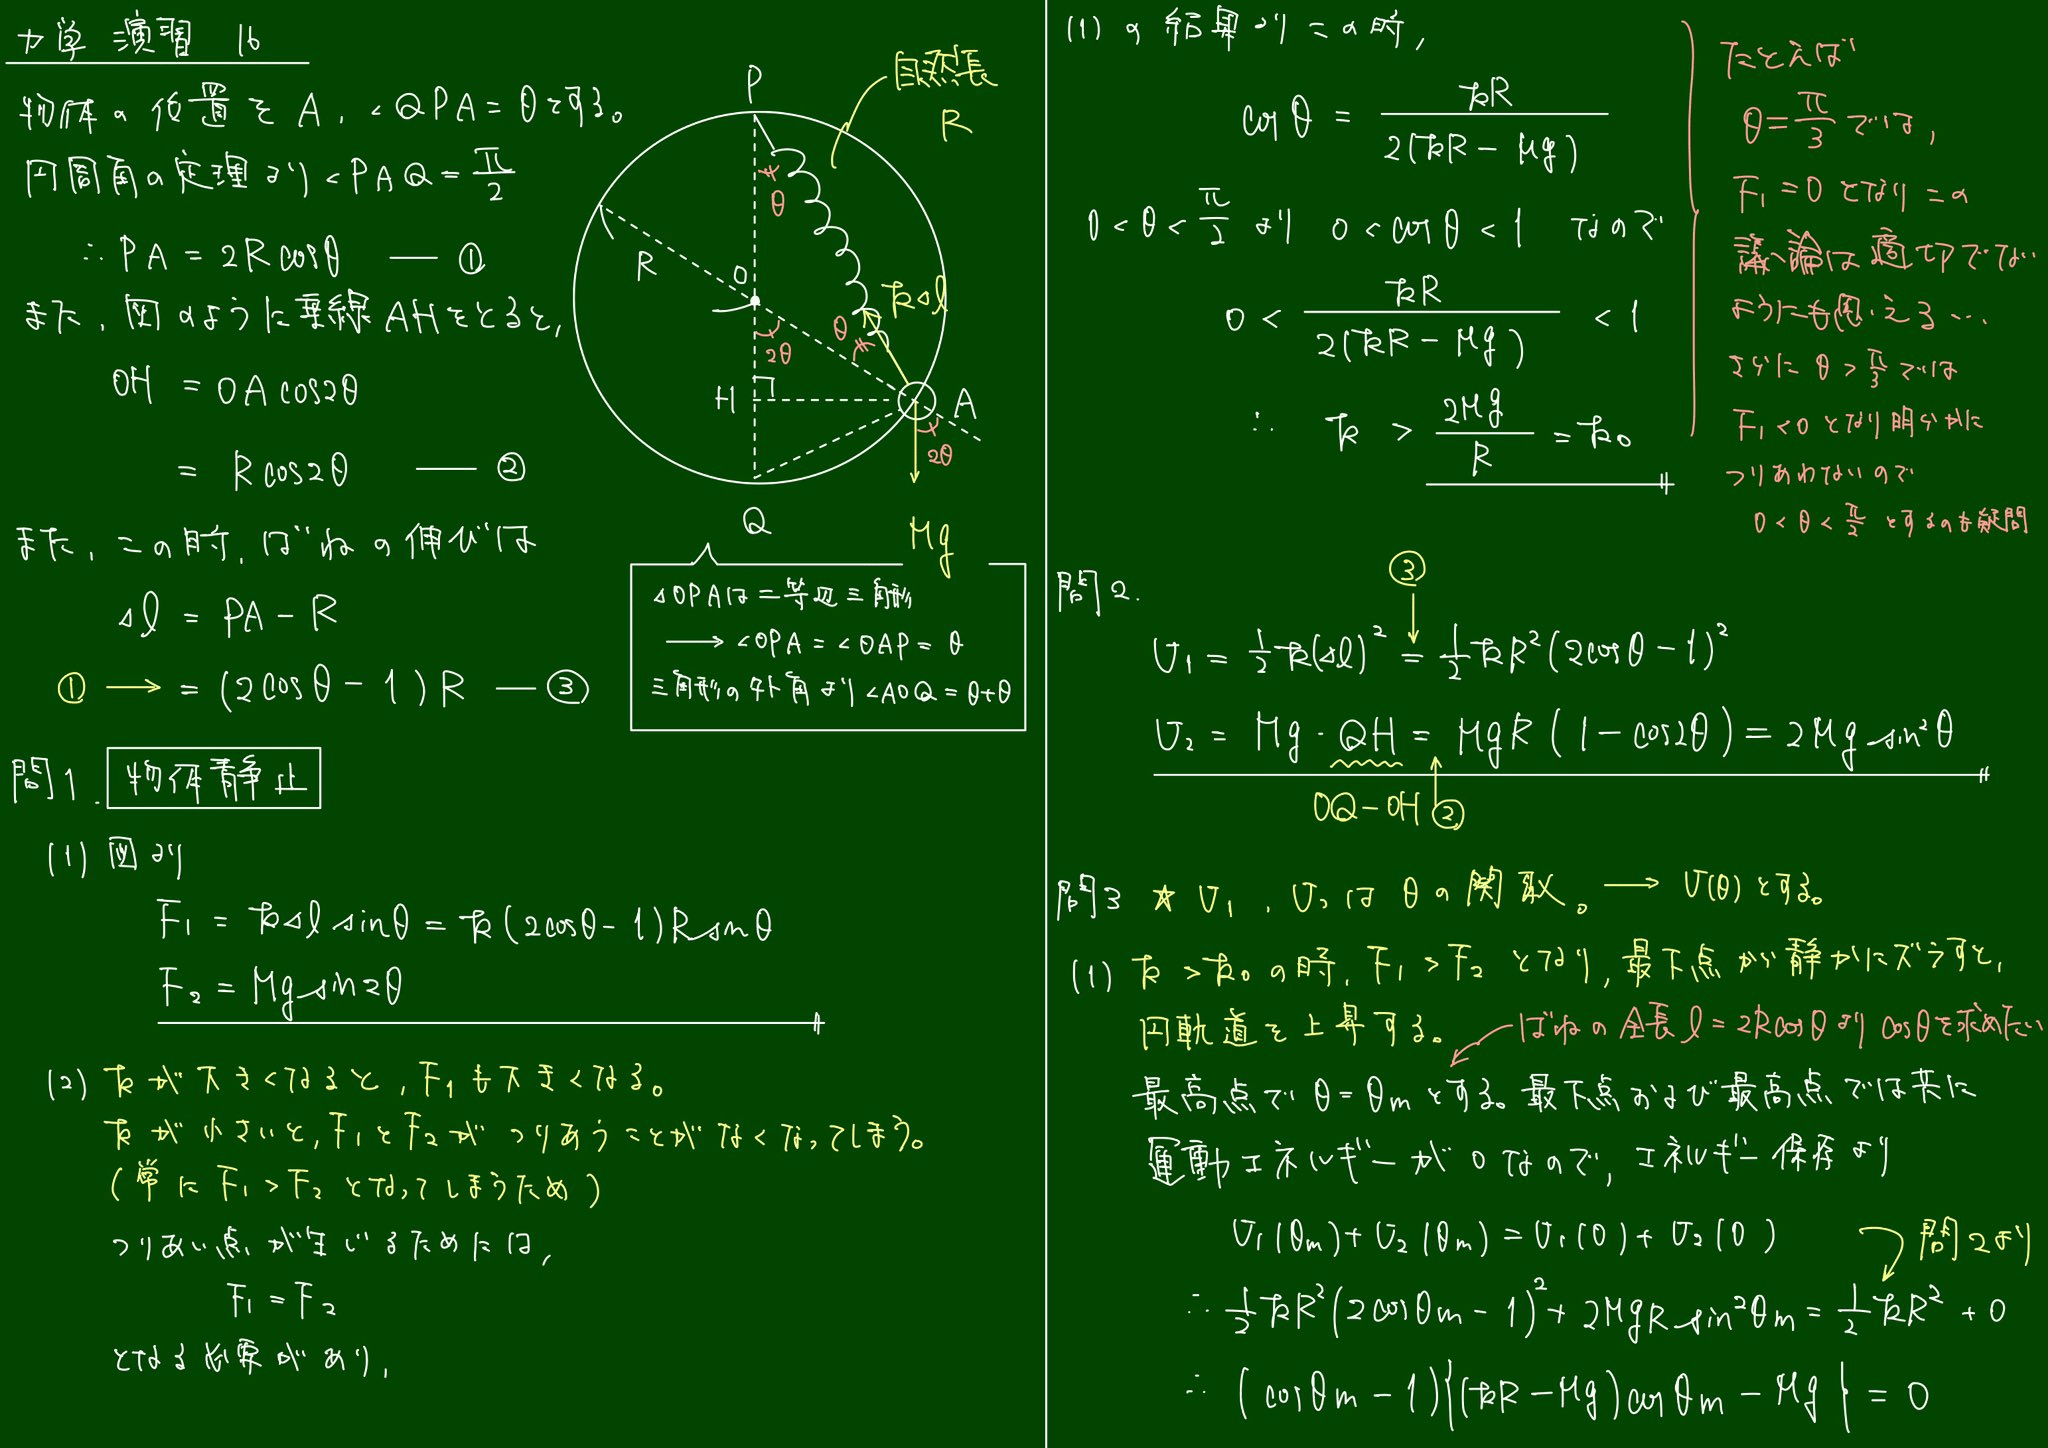 力学 演習 16
物体の位置をA, <QPA = θとする。
円周角の定理より <PAQ = π/2
∴ PA = 2R cosθ — ①
また, 図のように垂線AHをとると,
OH = OA cos2θ
= R cos2θ — ②
また, この時, ばねの伸びは
Δl = PA - R
① → = (2cosθ - 1)R — ③
P
自然長
R
θ
R
O
kΔl
θ
2θ
H
A
2θ
Q
Mg
△OPAは二等辺三角形
→ <OPA = <OAP = θ
三角形の外角より <AOQ = θ+θ
問1. 物体静止
(1) 図より
F₁ = kΔl sinθ = k(2cosθ - 1)R sinθ
F₂ = Mg sin2θ
(2) kが大きくなると, F₁も大きくなる。
kが小さいと, F₁とF₂がつりあうことがなくなってしまう。
(常に F₁ > F₂ となってしまうため)
つりあい点が生じるためには,
F₁ = F₂
となる必要があり,
(1)の結果よりこの時,
cosθ = kR / 2(kR - Mg)
0 < θ < π/2 より 0 < cosθ < 1 なので
0 < kR / 2(kR - Mg) < 1
∴ k > 2Mg/R = k₀
たとえば
θ = π/3 では,
F₁ = 0 となりこの
議論は適切でない
ようにも思える…
さらに θ > π/3 では
F₁ < 0 となり明らかに
つりあわないので
0 < θ < π/2 とするのも疑問
問2.
③
U₁ = 1/2 k(Δl)² = 1/2 kR²(2cosθ - 1)²
U₂ = Mg · QH = MgR(1 - cos2θ) = 2Mg sin²θ
OQ - OH ②
問3 ☆ U₁, U₂は θの関数。 → U(θ)とする。
(1) k > k₀の時, F₁ > F₂ となり, 最下点から静かにズラすと,
円軌道を上昇する。
ばねの全長 l = 2Rcosθ より cosθを求めたい
最高点で θ = θm とする。最下点および最高点では共に
運動エネルギーが0なので, エネルギー保存より
U₁(θm) + U₂(θm) = U₁(0) + U₂(0)
問2より
∴ 1/2 kR²(2cosθm - 1)² + 2MgR sin²θm = 1/2 kR² + 0
∴ (cosθm - 1){(kR - Mg)cosθm - Mg} = 0